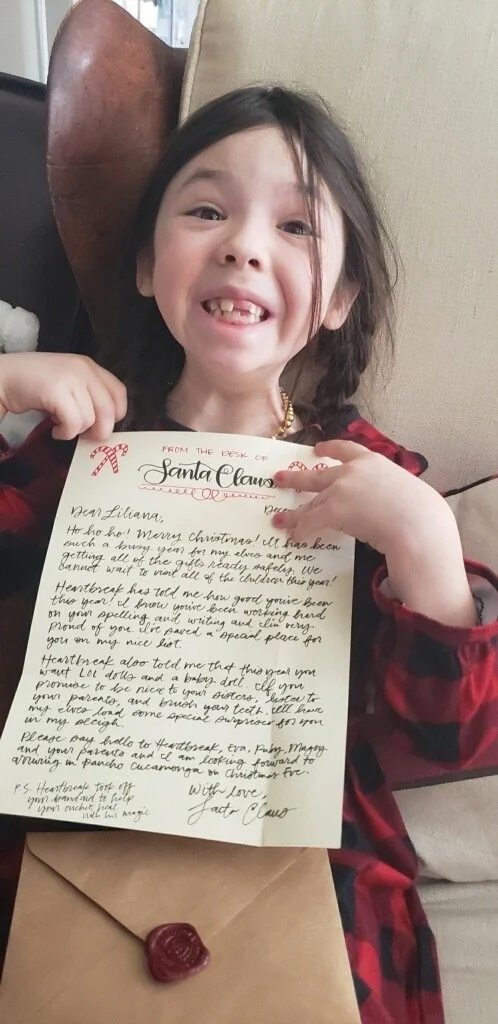 FROM THE DESK OF
Santa Claus
Decem
Dear Liliana,
Ho ho ho! Merry Christmas! It has been
such a busy year for my elves and me
getting all of the gifts ready safely. We
cannot wait to visit all of the children this year!
Heartbreak has told me how good you've been
this year! I know you've been working hard
on your spelling and writing and I'm very
proud of you. I've saved a special place for
you on my nice list.
Heartbreak also told me that this year you
want LOL dolls and a baby doll. If you
promise to be nice to your sisters, listen to
your parents, and brush your teeth, I'll have
my elves load some special surprises for you
in my sleigh.
Please say hello to Heartbreak, Eva, Ruby, Maggy
and your parents and I am looking forward to
arriving in Rancho Cucamonga on Christmas Eve.
With love,
Santa Claus
P.S. Heartbreak took off
your bandaid to help
your ouchie heal
with his magic